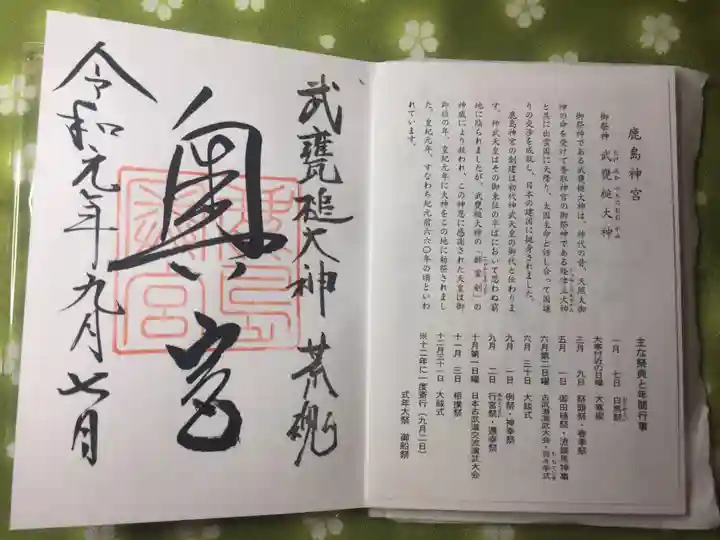 武甕槌大神 荒魂
奥宮
鹿島
神宮
令和元年九月七日
鹿島神宮
御祭神 武甕槌大神
御祭神である武甕槌大神は、神代の昔、天照大御
神の命を受けて香取神宮の御祭神である経津主大神
と共に出雲国に天降り、大国主命と話し合って国譲
りの交渉を成就し、日本の建国に挺身されました。
鹿島神宮の創建は初代神武天皇の御代と伝わりま
す。神武天皇はその御東征の半ばにおいて思わぬ窮
地に陥られましたが、武甕槌大神の「韴霊剣」の
神威により救われ、この神恩に感謝された天皇は御
即位の年、皇紀元年に大神をこの地に勅祭されまし
た。皇紀元年、すなわち紀元前六六〇年の頃といわ
れています。
主な祭典と年間行事
一月 七日 白馬祭
大寒付近の日曜 大寒禊
三月 九日 祭頭祭・春季祭
五月 一日 御田植祭・流鏑馬神事
六月第二日曜 古武道演武大会・
六月 三十日 大祓式
九月 一日 例祭・神幸祭
九月 二日 行宮祭・還幸祭
十月第一日曜 日本古武道交流演武大会
十一月 三日 相撲祭
十二月三十一日 大祓式
※十二年に一度斎行(九月二日)
式年大祭 御船祭